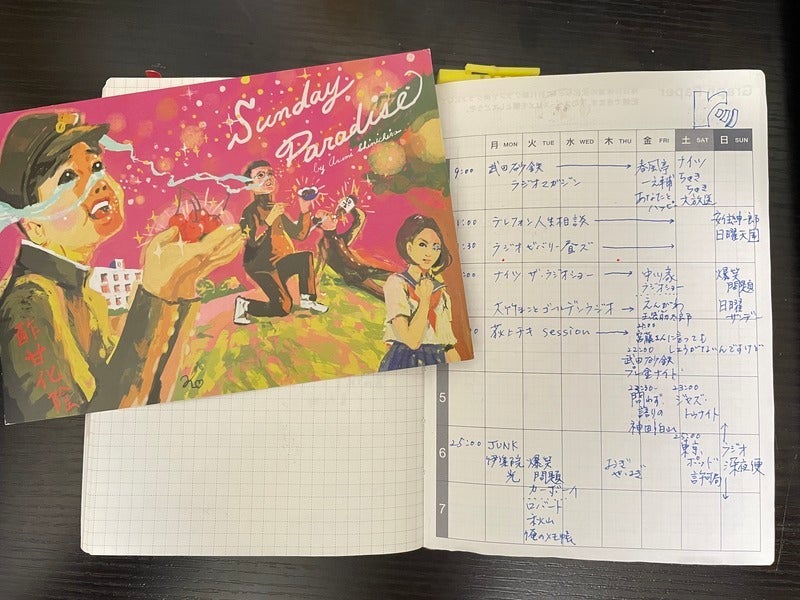 Sunday
Paradise
by Asami Shinichiro
酢甘化合
月 MON 火 TUE 水 WED 木 THU 金 FRI 土 SAT 日 SUN
9:00 武田砂鉄 → 春風亭 ナイツ
ラジオマガジン 一之輔 ちゃき
あなたと ちゃき
ハッピー 大放送
:00 テレフォン人生相談 → 安住紳一郎
日曜天国
:30 ラジオビバリー昼ズ →
:00 ナイツ ザ・ラジオショー → 中川家 爆笑
ラジオショー 問題
大竹まことゴールデンラジオ → えんがわ 日曜
サンデー
:00 荻上チキ session →
宮藤さんに言っても
22:00 しょうがないんですけど
武田砂鉄
プレ金ナイト
23:00
問わず ジャズ・
語りの トゥナイト
神田伯山
5
25:00 JUNK 25:00
6 伊集院 爆笑 おぎ 東京 ラジオ
光 問題 やはぎ ポッド 深夜便
カーボーイ 許可局
7 ロバート
秋山
俺のメモ帳